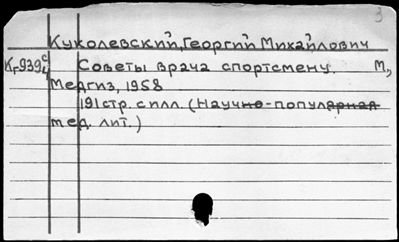 Куколевский, Георгий Михайлович
Кг939 Советы врача спортсмену. М,
Медгиз, 1958
191 стр. с илл. (Научно-популярная
мед. лит.)